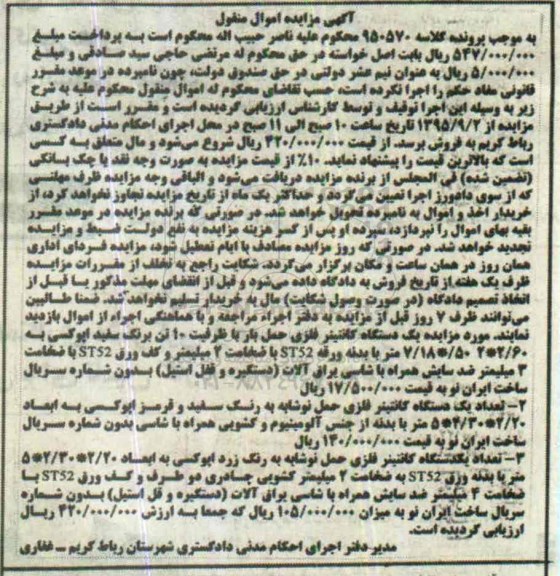 آگهی مزایده اموال منقول
به موجب پرونده کلاسه ۹۵۰۵۷۰ محکوم علیه ناصر حبیب اله محکوم است به پرداخت مبلغ
۵۴۷/۰۰۰/۰۰۰ ریال بابت اصل خواسته در حق محکوم له مرتضی حاجی سید صادقی و مبلغ
۵/۰۰۰/۰۰۰ ریال به عنوان نیم عشر دولتی در حق صندوق دولت، چون نامبرده در موعد مقرر
قانونی مفاد حکم را اجرا نکرده است، حسب تقاضای محکوم له اموال منقول محکوم علیه به شرح
زیر به وسیله این اجرا توقیف و توسط کارشناس ارزیابی گردیده است و مقرر است از طریق
مزایده از ۱۳۹۵/۹/۲ تاریخ ساعت ۱۰ صبح الی ۱۱ صبح در محل اجرای احکام مدنی دادگستری
رباط کریم به فروش برسد. از قیمت ۴۲۰/۰۰۰/۰۰۰ ریال شروع می‌شود و مال متعلق به کسی
است که بالاترین قیمت را پیشنهاد نماید. ۱۰٪ از قیمت مزایده به صورت وجه نقد یا چک بانکی
(تضمین شده) فی المجلس از برنده مزایده دریافت می‌شود و الباقی وجه مزایده ظرف مهلتی
که از سوی دادورز اجرا تعیین می‌گردد و حداکثر یک ماه از تاریخ مزایده تجاوز نخواهد کرد، از
خریدار اخذ و اموال به نامبرده تحویل خواهد شد. در صورتی که برنده مزایده در موعد مقرر
بقیه بهای اموال را نپردازد، سپرده او پس از کسر هزینه مزایده به نفع دولت ضبط و مزایده
تجدید خواهد شد. در صورتی که روز مزایده مصادف با ایام تعطیل شود، مزایده فردای اداری
همان روز در همان ساعت و مکان برگزار می‌گردد. شکایت راجع به تخلف از مقررات مزایده
ظرف یک هفته از تاریخ فروش به دادگاه داده می‌شود و قبل از انقضای مهلت مذکور یا قبل از
اتخاذ تصمیم دادگاه (در صورت وصول شکایت) مال به خریدار تسلیم نخواهد شد. ضمنا طالبین
می‌توانند ظرف ۷ روز قبل از مزایده به دفتر اجراء مراجعه و با هماهنگی اجراء از اموال بازدید
نمایند. مورد مزایده یک دستگاه کانتینر فلزی حمل بار با ظرفیت ۱۰ تن برنگ سفید اپوکسی به
۲/۶۰*۲/۵۰*۷/۱۸ متر با بدنه ورقه ST52 با ضخامت ۲ میلیمتر و کف ورق ST52 با ضخامت
۳ میلیمتر ضد سایش همراه با شاسی یراق آلات (دستگیره و قفل استیل) بدون شماره سریال
ساخت ایران نو به قیمت ۱۷/۵۰۰/۰۰۰ ریال
۲– تعداد یک دستگاه کانتینر فلزی حمل نوشابه به رنگ سفید و قرمز اپوکسی به ابعاد
۲/۲۰*۴/۳۰*۵ متر با بدنه از جنس آلومینیوم و کشویی همراه با شاسی بدون شماره سریال
ساخت ایران نو به قیمت ۱۴۰/۰۰۰/۰۰۰ ریال
۳– تعداد یکدستگاه کانتینر فلزی حمل نوشابه به رنگ زرد اپوکسی به ابعاد ۲/۲۰*۲/۳۰*۵
متر با بدنه ورق ST52 به ضخامت ۲ میلیمتر کشویی چادری دو طرف و کف ورق ST52 با
ضخامت ۴ میلیمتر ضد سایش همراه با شاسی یراق آلات (دستگیره و قل استیل) بدون شماره
سریال ساخت ایران نو به میزان ۱۰۵/۰۰۰/۰۰۰ ریال که جمعا به ارزش ۴۲۰/۰۰۰/۰۰۰ ریال
ارزیابی گردیده است.
مدیر دفتر اجرای احکام مدنی دادگستری شهرستان رباط کریم – غفاری